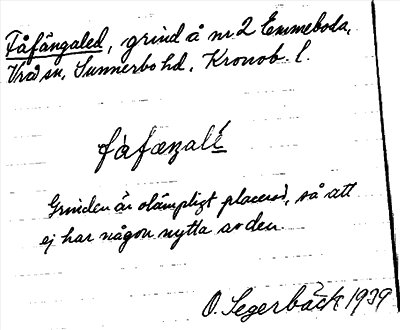 Fåfängaled, grind å nr 2 Emmeboda,
Vrå sn, Sunnerbo hd, Kronob. l.
Grinden är olämpligt placerad, så att
ej har någon nytta av den.
O. Segerbäck 1939